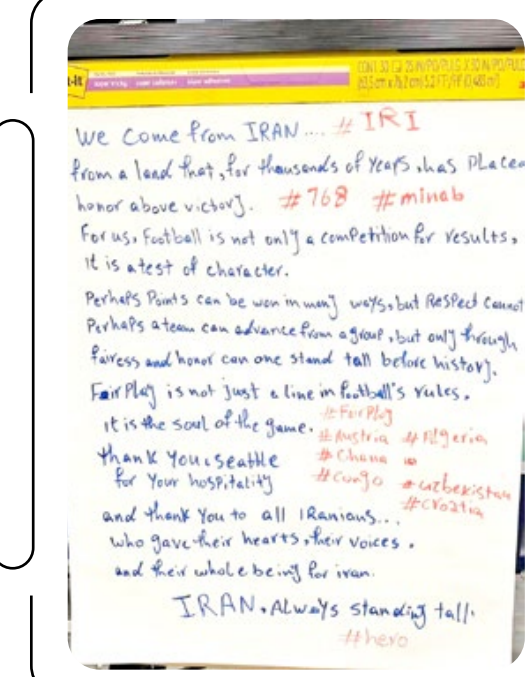 CONT. 30
We come from IRAN.... # IRI
from a land that, for thousands of years, has placed
honor above victory. #768 #minab
For us, Football is not only a competition for results,
it is a test of character.
Perhaps Points can be won in many ways, but Respect cannot
Perhaps a team can advance from a group, but only through
fairess and honor can one stand tall before history.
Fair Play is not just a line in football's rules.
it is the soul of the game. #FairPlay
#Austria #Algeria
thank You seattle #Ghana
for Your hospitality #Congo #uzbekistan
#croatia
and thank You to all IRanians...
who gave their hearts, their voices,
and their whole being for iran.
IRAN. Always standing tall.
#hero